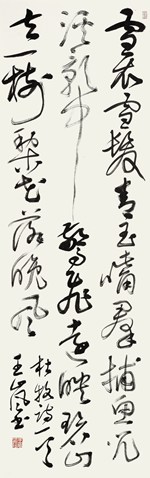 雪衣雪髮青玉嘴群捕魚兒
溪影中驚飛遠映碧山
去一樹梨花落晚風
杜牧詩一首
王